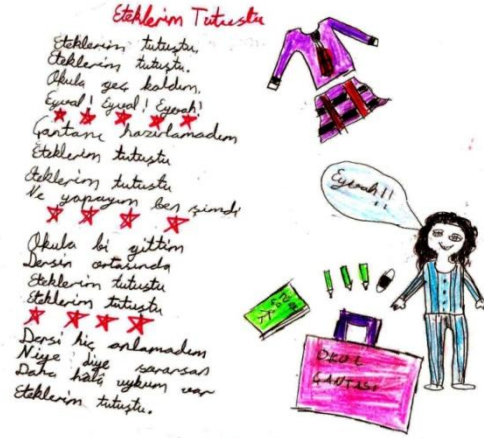 Eteklerim Tutuştu
Eteklerim tutuştu,
Eteklerim tutuştu.
Okula geç kaldım.
Eyval! Eyval! Eyvah!
Çantamı hazırlamadım
Eteklerim tutuştu
Eteklerim tutuştu
Ne yapayım ben şimdi
Okula bi gittim
Dersin ortasında
Eteklerim tutuştu
Eteklerim tutuştu
Dersi hiç anlamadım
Niye diye sorarsan
Daha hâlâ uykum var
Eteklerim tutuştu.
Eyvah!!
OKUL
ÇANTASI